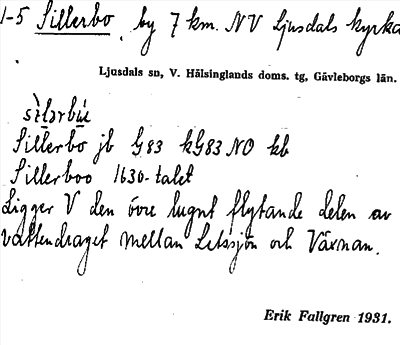 1-5 Sillerbo, by 7 km. NV Ljusdals kyrka
Ljusdals sn, V. Hälsinglands doms. tg, Gävleborgs län.
Sillerbo jb G83 kG83 NO kb
Sillerboo 1630-talet
Ligger V den övre lugnt flytande delen av
vattendraget mellan Letssjön och Växnan.
Erik Fallgren 1931.